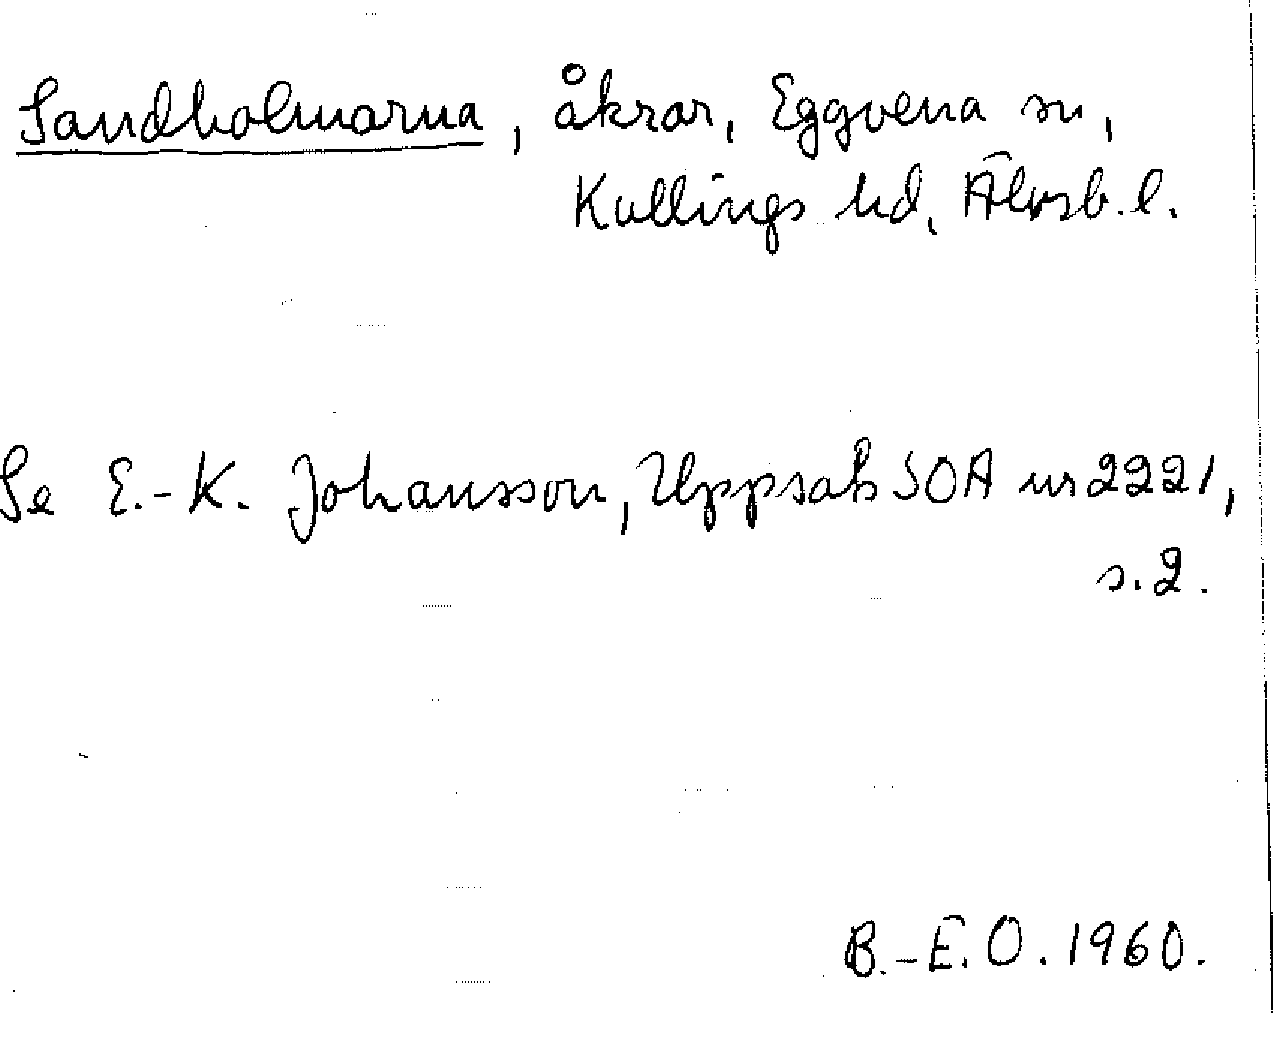 Sandholmarna, åkrar, Eggvena sn,
Kullings hd, Älvsb. l.
Se E.-K. Johansson, Uppsats SOA nr 2221,
s. 2.
B.-E. O. 1960.